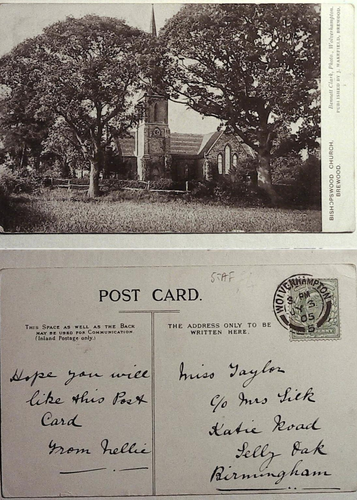 Bennett Clark, Photo, Wolverhampton.
PUBLISHED BY J. WAKEFIELD, BREWOOD.
BISHOPSWOOD CHURCH,
BREWOOD.
STAF
POST CARD.
THIS SPACE AS WELL AS THE BACK
MAY BE USED FOR COMMUNICATION
(Inland Postage only.)
THE ADDRESS ONLY TO BE
WRITTEN HERE.
WOLVERHAMPTON
05
Hope you will
like this Post
Card
From Nellie
Miss Taylor
C/o Mrs Silk
Katie Road
Selly Oak
Birmingham